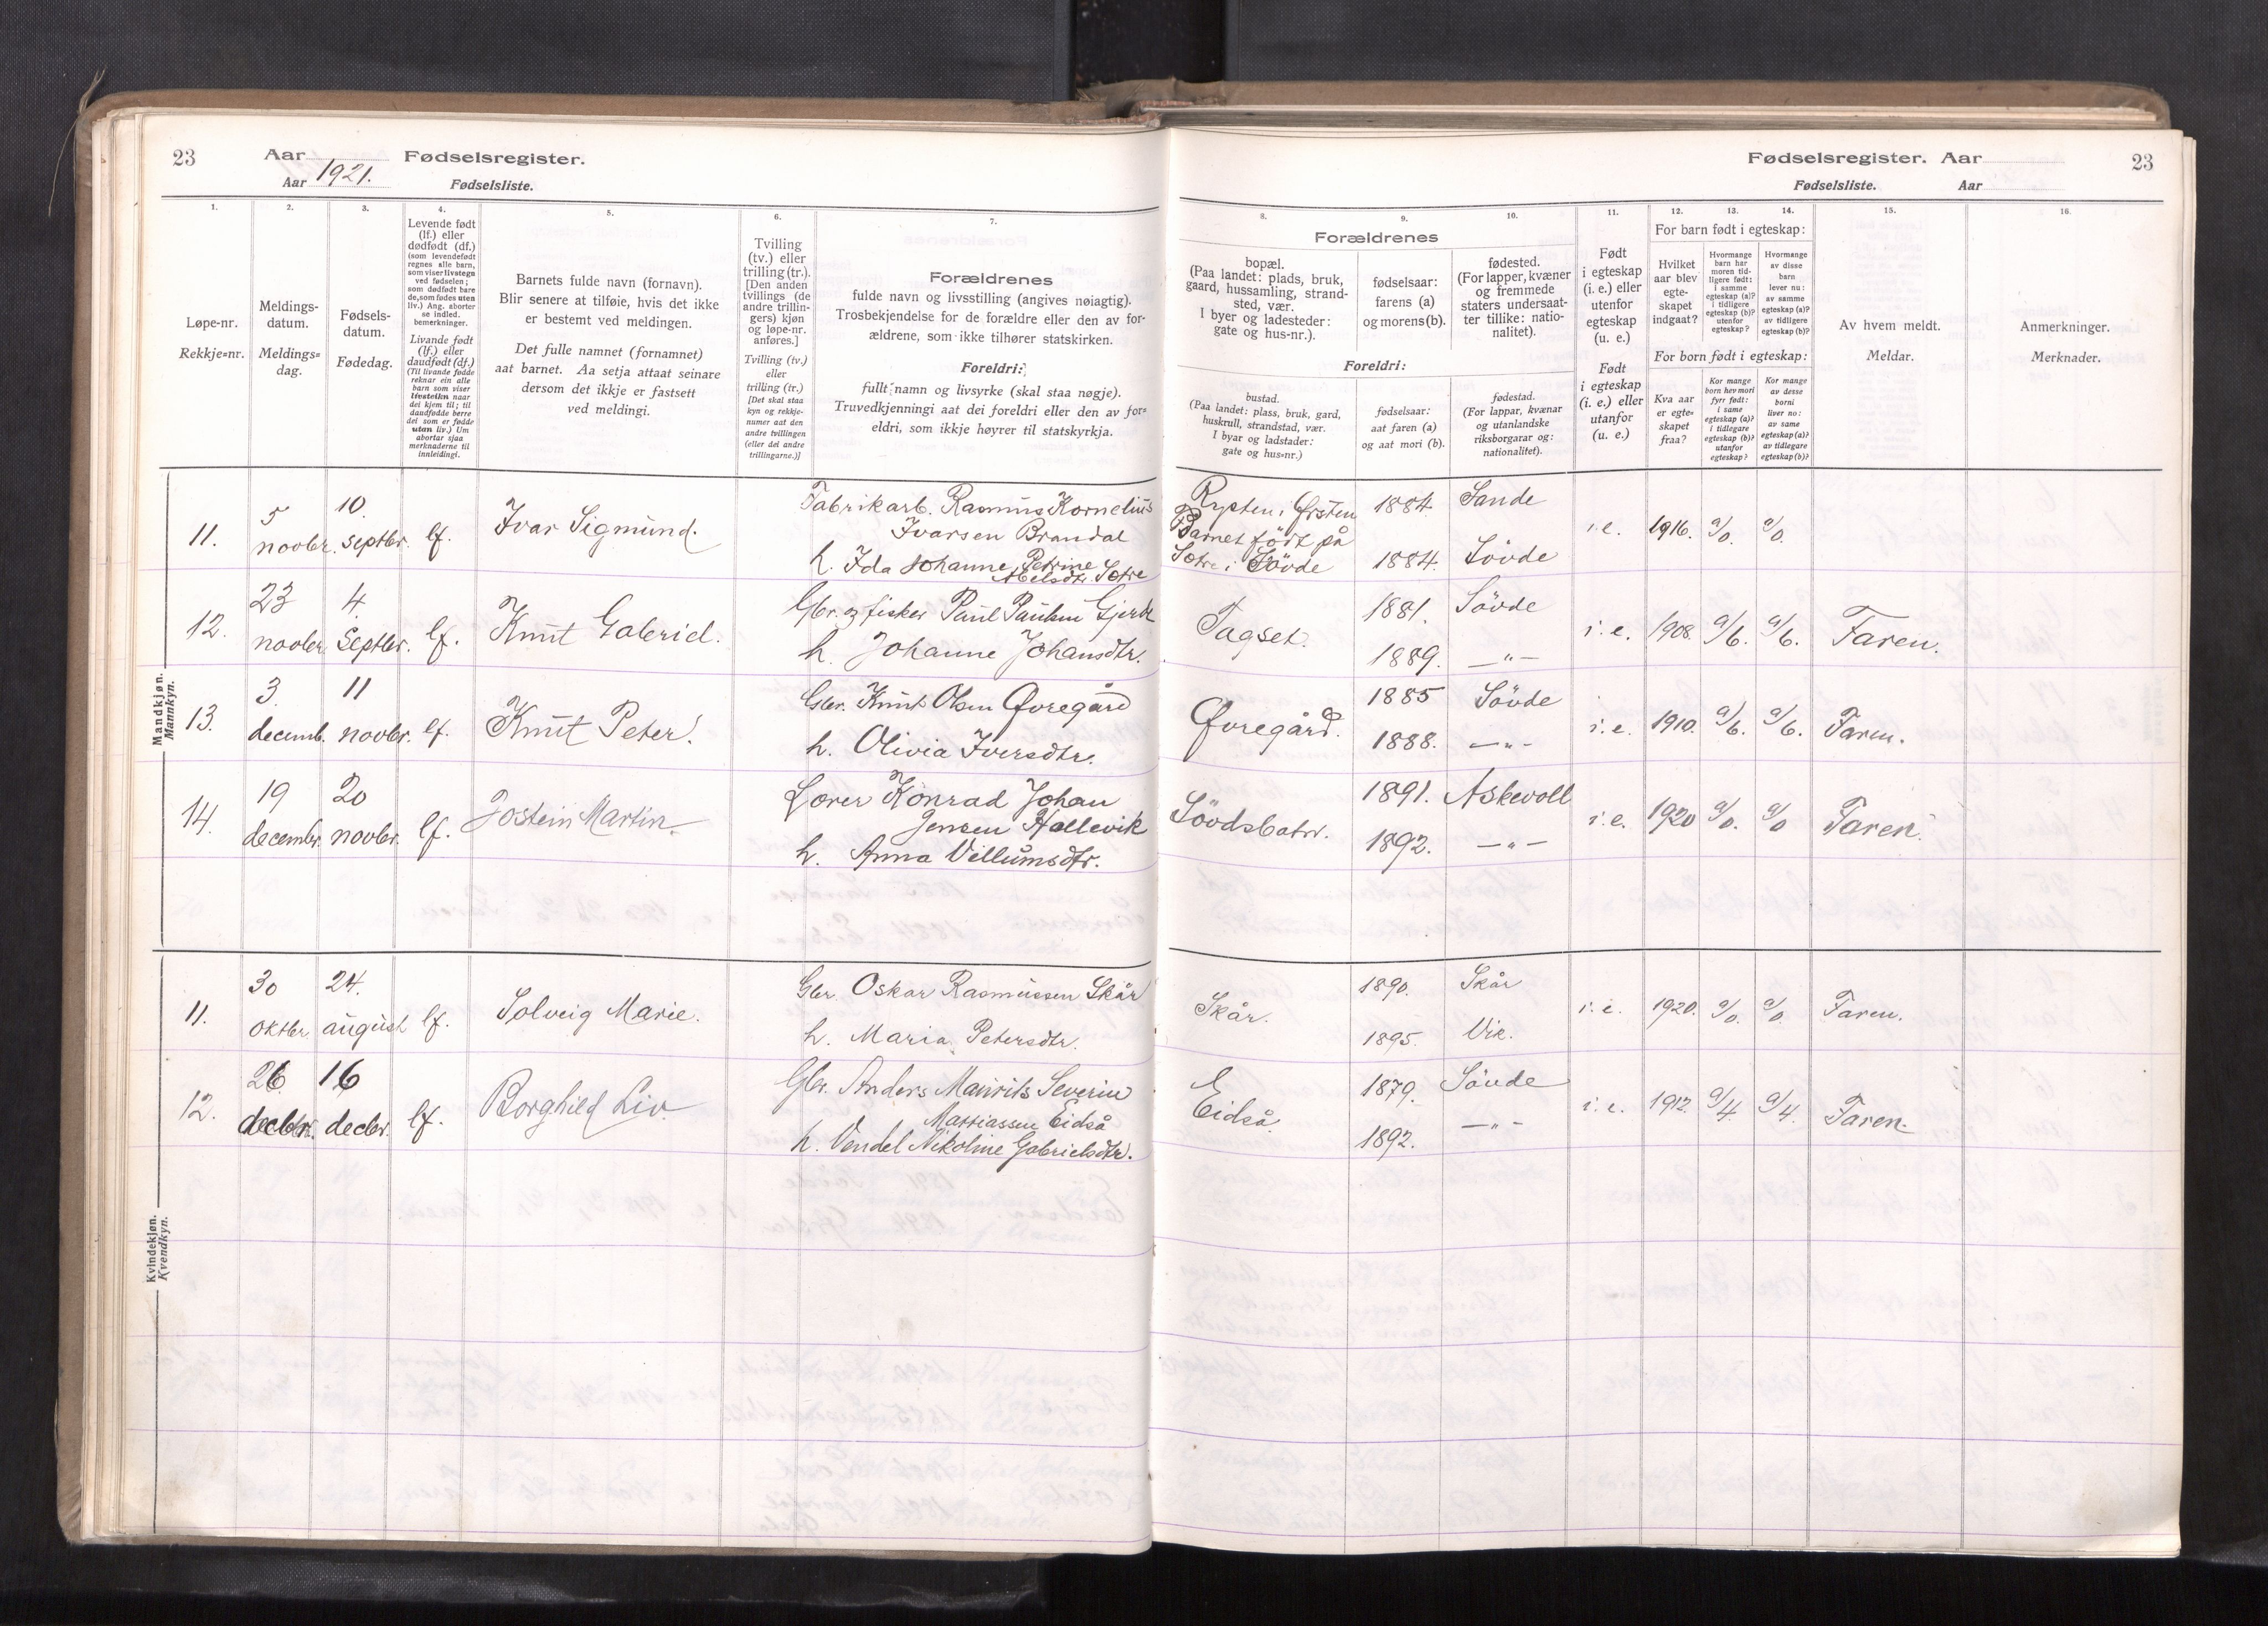 23
Aar
Fødselsregister.
Aar 1921.
Fødselsliste.
1.
Løpe-nr.
Rekkje=nr.
2.
Meldings-
datum.
Meldings=
dag.
3.
Fødsels-
datum.
Fødedag.
4.
Levende født
(lf.) eller
dødfødt (df.)
(som levendefødt
regnes alle barn,
som viser livstegn
ved fødselen;
som dødfødt bare
de, som fødes uten
liv.) Ang. aborter
se indled.
bemerkninger.
Livande født
(lf.) eller
daudfødt (df.)
(Til livande fødde
reknar ein alle
barn som viser
livsteikn naar
dei kjem til; til
daudfødde berre
dei som er fødde
utan liv.) Um
abortar sjaa
merknaderne til
innleidingi.
5.
Barnets fulde navn (fornavn).
Blir senere at tilføie, hvis det ikke
er bestemt ved meldingen.
Det fulle namnet (fornamnet)
aat barnet. Aa setja attaat seinare
dersom det ikkje er fastsett
ved meldingi.
6.
Tvilling
(tv.) eller
trilling (tr.).
[Den anden
tvillings (de
andre trillin-
gers) kjøn
og løpe-nr.
anføres.]
Tvilling (tv.)
eller
trilling (tr.)
[Det skal staa
kyn og rekkje-
numer aat den
andre tvillingen
(eller dei andre
trillingarne.)]
7.
Forældrenes
fulde navn og livsstilling (angives nøiagtig).
Trosbekjendelse for de forældre eller den av for-
ældrene, som ikke tilhører statskirken.
Foreldri:
fullt namn og livsyrke (skal staa nøgje).
Truvedkjenningi aat dei foreldri eller den av for=
eldri, som ikkje høyrer til statskyrkja.
Mandkjøn.
Mannkyn.
11.
5
novbr.
10.
septbr.
lf.
Ivar Sigmund.
Fabrikarb. Rasmus Kornelius
Ivarsen Brandal
h. Ida Johanne Petrine
Abelsdtr. Sætre
12.
23
novbr.
4
Septbr.
lf.
Knut Gabriel.
Gbr. og fisker Paul Paulsen Gjerde
h. Johanne Johansdtr.
13.
3.
decemb.
11
novbr.
lf.
Knut Peter.
Gbr. Knut Olsen Øvregård
h. Olivia Iversdtr.
14.
19
decembr.
20
novbr.
lf.
Jostein Martin.
Lærer Konrad Johan
Jensen Hallevik
h. Anna Villumsdtr.
Kvindekjøn.
Kvendkyn.
11.
30
oktbr.
24.
august
lf.
Solveig Marie.
Gbr. Oskar Rasmussen Skår
h. Maria Petersdtr.
12.
26
decbr.
16
decbr.
lf.
Borghild Liv.
Gbr. Anders Maurits Severin
Mattiassen Eidså
h. Vendel Nikoline Gabrielsdtr.
Fødselsregister. Aar
23
Fødselsliste.
Aar
8.
Forældrenes
bopæl.
(Paa landet: plads, bruk,
gaard, hussamling, strand-
sted, vær.
I byer og ladesteder:
gate og hus-nr.).
9.
fødselsaar:
farens (a)
og morens (b).
10.
fødested.
(For lapper, kvæner
og fremmede
staters undersaat-
ter tillike: natio-
nalitet).
Foreldri:
bustad.
(Paa landet: plass, bruk, gard,
huskrull, strandstad, vær.
I byar og ladstader:
gate og hus=nr.)
fødselsaar:
aat faren (a)
og aat mori (b).
fødestad.
(For lappar, kvænar
og utanlandske
riksborgarar og:
nationalitet).
11.
Født
i egteskap
(i. e.) eller
utenfor
egteskap
(u. e.)
Født
i egteskap
(i. e.) eller
utanfor
(u. e.)
12.
13.
14.
For barn født i egteskap:
Hvilket
aar blev
egte-
skapet
indgaat?
Hvormange
barn har
moren tid-
ligere født:
i samme
egteskap (a)?
i tidligere
egteskap (b)?
utenfor
egteskap?
Hvormange
av disse
barn
lever nu:
av samme
egteskap (a)?
av tidligere
egteskap (b)?
For born født i egteskap:
Kva aar
er egte-
skapet
fraa?
Kor mange
born hev mori
fyrr født:
i same
egteskap (a)?
i tidlegare
egteskap (b)?
utanfor
egteskap?
Kor mange
av desse
borni
liver no:
av same
egteskap (a)?
av tidlegare
egteskap (b)?
15.
Av hvem meldt.
Meldar.
16.
Anmerkninger.
Merknader.
Rysten i Ørsten
Barnet født på
Sætre i Søvde
1884.
1884.
Sande
Søvde
i. e.
1916.
a/0.
a/0.
Tagset.
1881.
1889.
Søvde
—„—
i. e.
1908.
a/6.
a/6.
Faren.
Øvregård.
1885
1888.
Søvde
—„—
i. e.
1910.
a/6.
a/6.
Faren.
Søvdsbotn.
1891.
1892.
Askevoll
—„—
i. e.
1920
a/0.
a/0
Faren.
Skår.
1890.
1895.
Skår
Vik.
i. e.
1920.
a/0.
a/0.
Faren.
Eidså.
1879.
1892.
Søvde
—„—
i. e.
1912.
a/4.
a/4.
Faren.